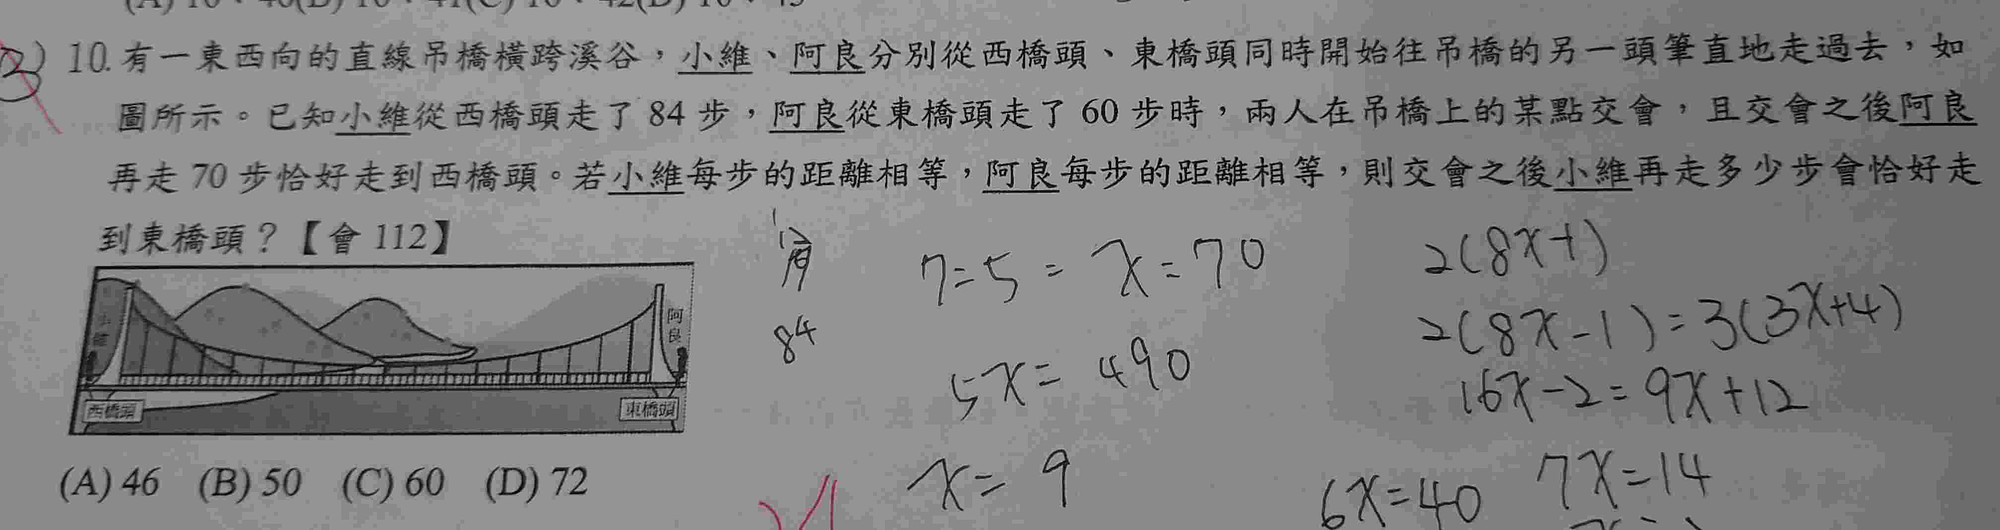 10. 有一東西向的直線吊橋橫跨溪谷，小維、阿良分別從西橋頭、東橋頭同時開始往吊橋的另一頭筆直地走過去，如
圖所示。已知小維從西橋頭走了 84 步，阿良從東橋頭走了 60 步時，兩人在吊橋上的某點交會，且交會之後阿良
再走 70 步恰好走到西橋頭。若小維每步的距離相等，阿良每步的距離相等，則交會之後小維再走多少步會恰好走
到東橋頭？【會 112】
阿良
西橋頭
東橋頭
(A) 46 (B) 50 (C) 60 (D) 72
84
7=5=x=70
5x=490
x=9
2(8x+1)
2(8x-1)=3(3x+4)
16x-2=9x+12
7x=14
6x=40